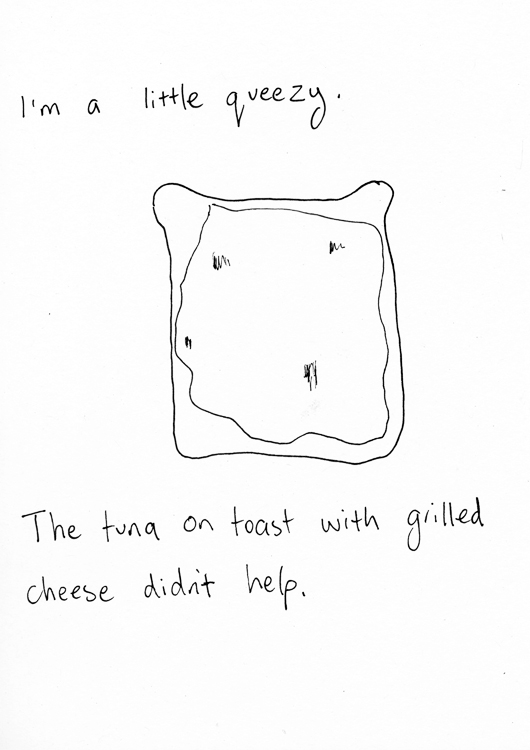 I'm a little queezy.
The tuna on toast with grilled
cheese didn't help.